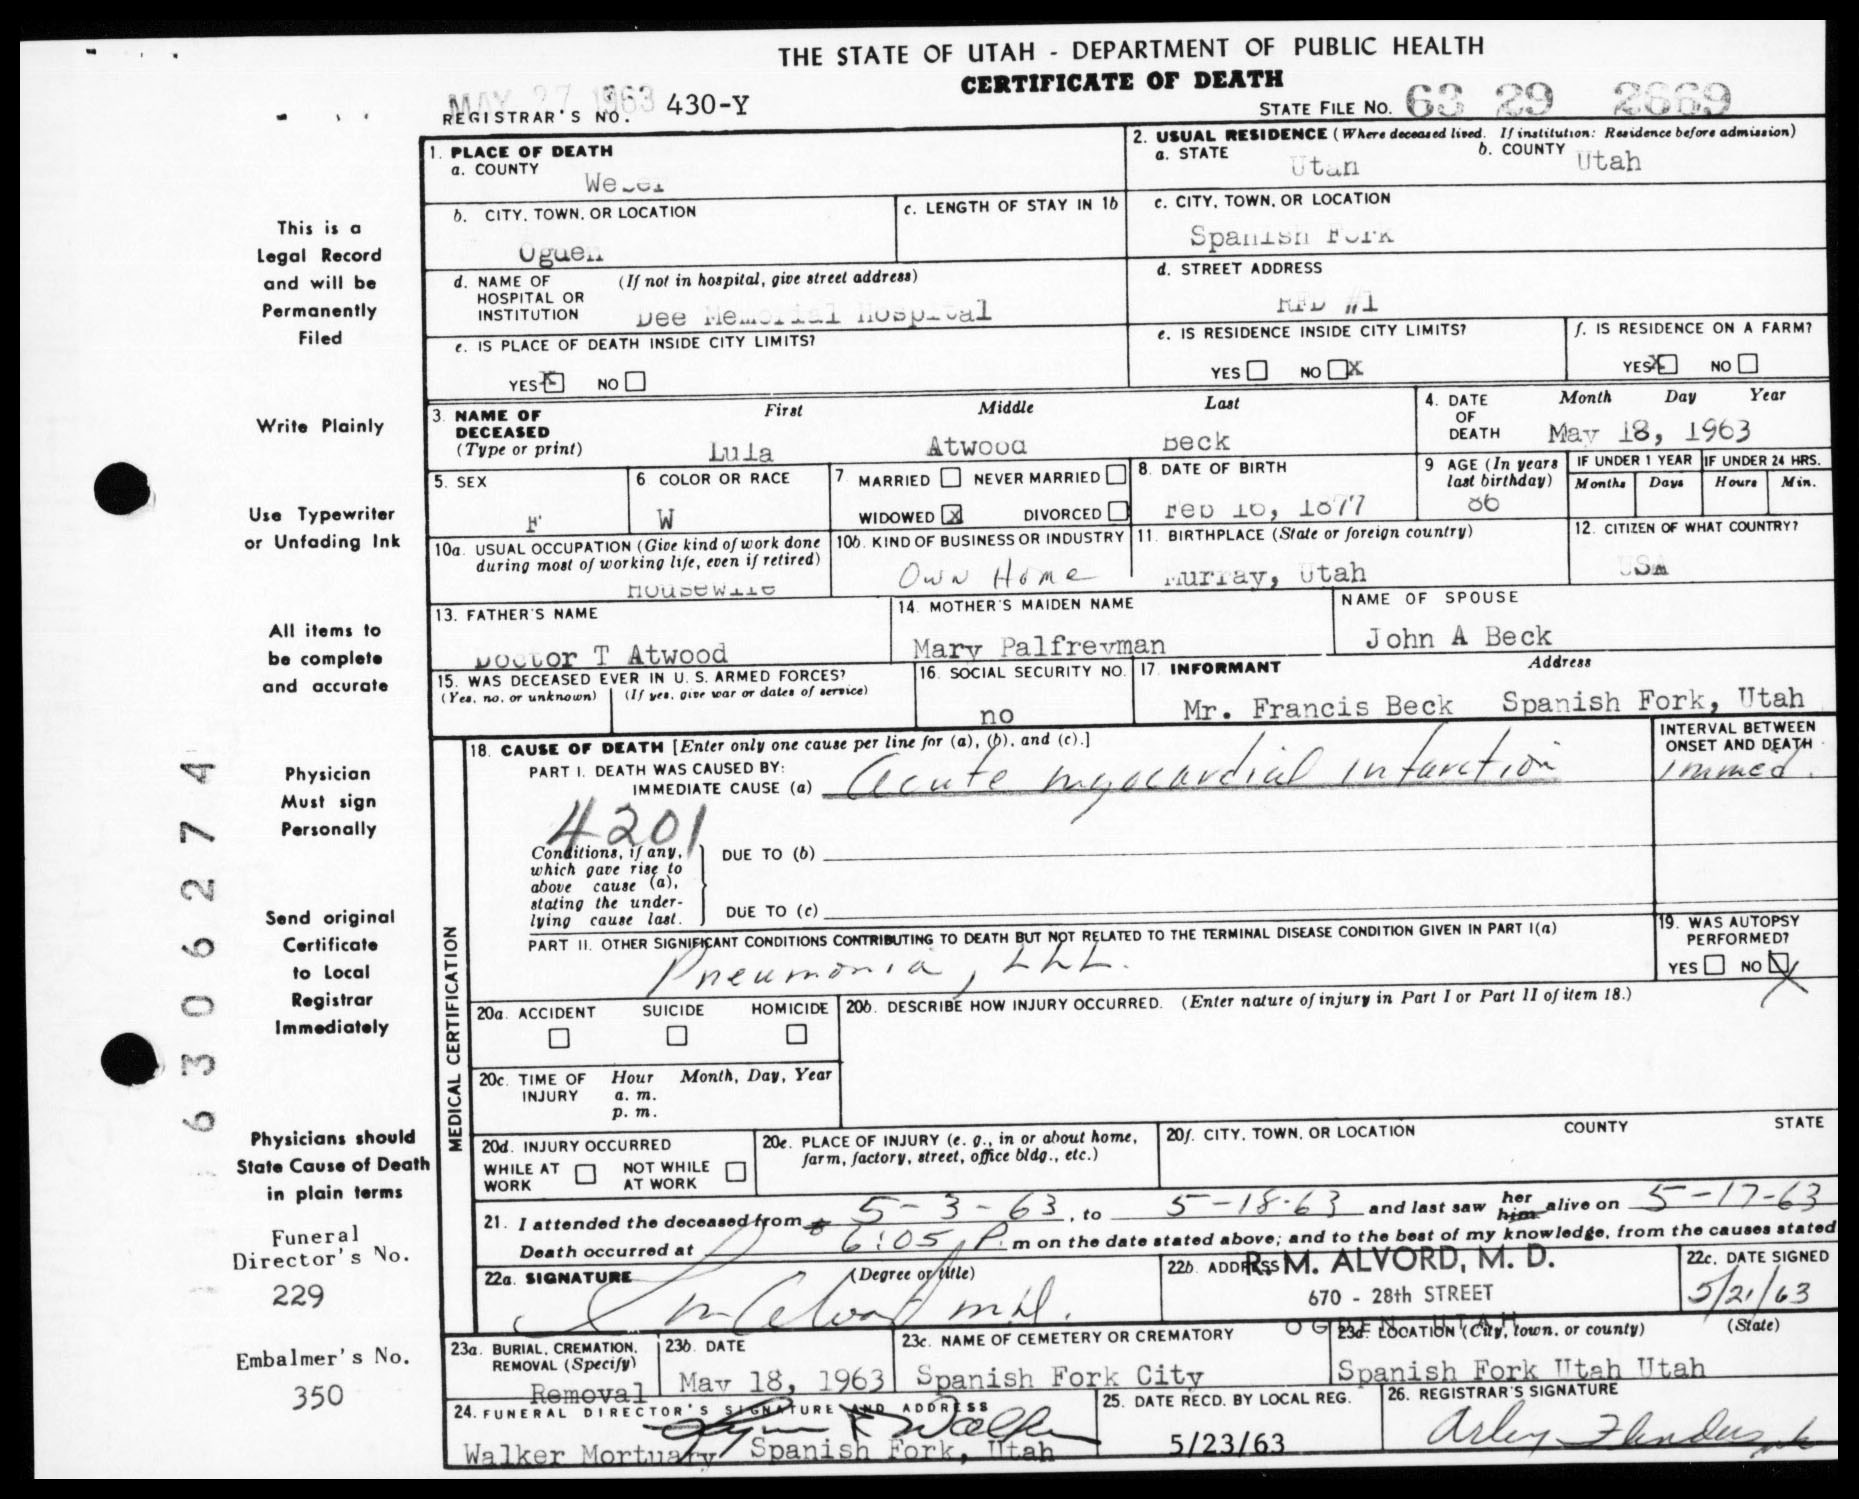 THE STATE OF UTAH - DEPARTMENT OF PUBLIC HEALTH
CERTIFICATE OF DEATH
MAY 27 1963
REGISTRAR'S NO. 430-Y
STATE FILE NO. 63 29 2669
1. PLACE OF DEATH
a. COUNTY
Weber
2. USUAL RESIDENCE (Where deceased lived. If institution: Residence before admission)
a. STATE Utah
b. COUNTY Utah
b. CITY, TOWN, OR LOCATION
Ogden
c. LENGTH OF STAY IN 1b
c. CITY, TOWN, OR LOCATION
Spanish Fork
d. NAME OF HOSPITAL OR INSTITUTION (If not in hospital, give street address)
Dee Memorial Hospital
d. STREET ADDRESS
RFD #1
e. IS PLACE OF DEATH INSIDE CITY LIMITS?
YES X NO
e. IS RESIDENCE INSIDE CITY LIMITS?
YES NO X
f. IS RESIDENCE ON A FARM?
YES X NO
3. NAME OF DECEASED (Type or print)
First Middle Last
Lula Atwood Beck
4. DATE OF DEATH Month Day Year
May 18, 1963
5. SEX
F
6. COLOR OR RACE
W
7 MARRIED NEVER MARRIED
WIDOWED X DIVORCED
8. DATE OF BIRTH
Feb 16, 1877
9 AGE (In years last birthday)
86
IF UNDER 1 YEAR Months Days
IF UNDER 24 HRS. Hours Min.
10a. USUAL OCCUPATION (Give kind of work done during most of working life, even if retired)
Housewife
10b. KIND OF BUSINESS OR INDUSTRY
Own Home
11. BIRTHPLACE (State or foreign country)
Murray, Utah
12. CITIZEN OF WHAT COUNTRY?
USA
13. FATHER'S NAME
Doctor T Atwood
14. MOTHER'S MAIDEN NAME
Mary Palfreyman
NAME OF SPOUSE
John A Beck
15. WAS DECEASED EVER IN U. S. ARMED FORCES?
(Yes, no, or unknown) (If yes, give war or dates of service)
16. SOCIAL SECURITY NO.
no
17. INFORMANT Address
Mr. Francis Beck Spanish Fork, Utah
MEDICAL CERTIFICATION
18. CAUSE OF DEATH [Enter only one cause per line for (a), (b), and (c).]
PART I. DEATH WAS CAUSED BY:
IMMEDIATE CAUSE (a) Acute myocardial infarction
INTERVAL BETWEEN ONSET AND DEATH
immed.
4201
Conditions, if any, which gave rise to above cause (a), stating the underlying cause last.
DUE TO (b)
DUE TO (c)
PART II. OTHER SIGNIFICANT CONDITIONS CONTRIBUTING TO DEATH BUT NOT RELATED TO THE TERMINAL DISEASE CONDITION GIVEN IN PART I(a)
Pneumonia, LLL.
19. WAS AUTOPSY PERFORMED?
YES NO X
20a. ACCIDENT SUICIDE HOMICIDE
20b. DESCRIBE HOW INJURY OCCURRED. (Enter nature of injury in Part I or Part II of item 18.)
20c. TIME OF INJURY Hour Month, Day, Year
a. m.
p. m.
20d. INJURY OCCURRED
WHILE AT WORK NOT WHILE AT WORK
20e. PLACE OF INJURY (e. g., in or about home, farm, factory, street, office bldg., etc.)
20f. CITY, TOWN, OR LOCATION COUNTY STATE
21. I attended the deceased from 5-3-63, to 5-18-63 and last saw her him alive on 5-17-63
Death occurred at 6:05 P. m on the date stated above; and to the best of my knowledge, from the causes stated
22a. SIGNATURE (Degree or title)
R M Alvord M.D.
22b. ADDRESS
R. M. ALVORD, M. D.
670 - 28th STREET
OGDEN UTAH
22c. DATE SIGNED
5/21/63
23a. BURIAL, CREMATION, REMOVAL (Specify)
Removal
23b. DATE
May 18, 1963
23c. NAME OF CEMETERY OR CREMATORY
Spanish Fork City
23d. LOCATION (City, town, or county) (State)
Spanish Fork Utah Utah
24. FUNERAL DIRECTOR'S SIGNATURE AND ADDRESS
Walker
Walker Mortuary Spanish Fork, Utah
25. DATE RECD. BY LOCAL REG.
5/23/63
26. REGISTRAR'S SIGNATURE
Arley Flinders
This is a
Legal Record
and will be
Permanently
Filed
Write Plainly
Use Typewriter
or Unfading Ink
All items to
be complete
and accurate
Physician
Must sign
Personally
Send original
Certificate
to Local
Registrar
Immediately
Physicians should
State Cause of Death
in plain terms
Funeral
Director's No.
229
Embalmer's No.
350
6306274